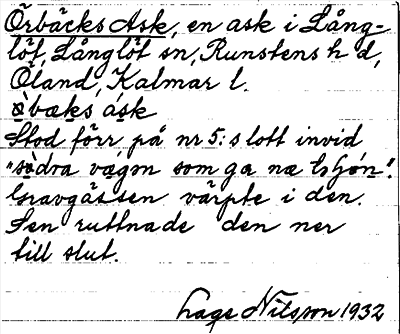 Örbäcks Ask, en ask i Lång-
löt, Långlöt sn, Runstens h d,
Öland, Kalmar l.
Stod förr på nr 5:s lott invid
"södra vägen som ga na
Gravgässen värpte i den.
Sen ruttnade den ner
till slut.
Lage Nilsson 1932